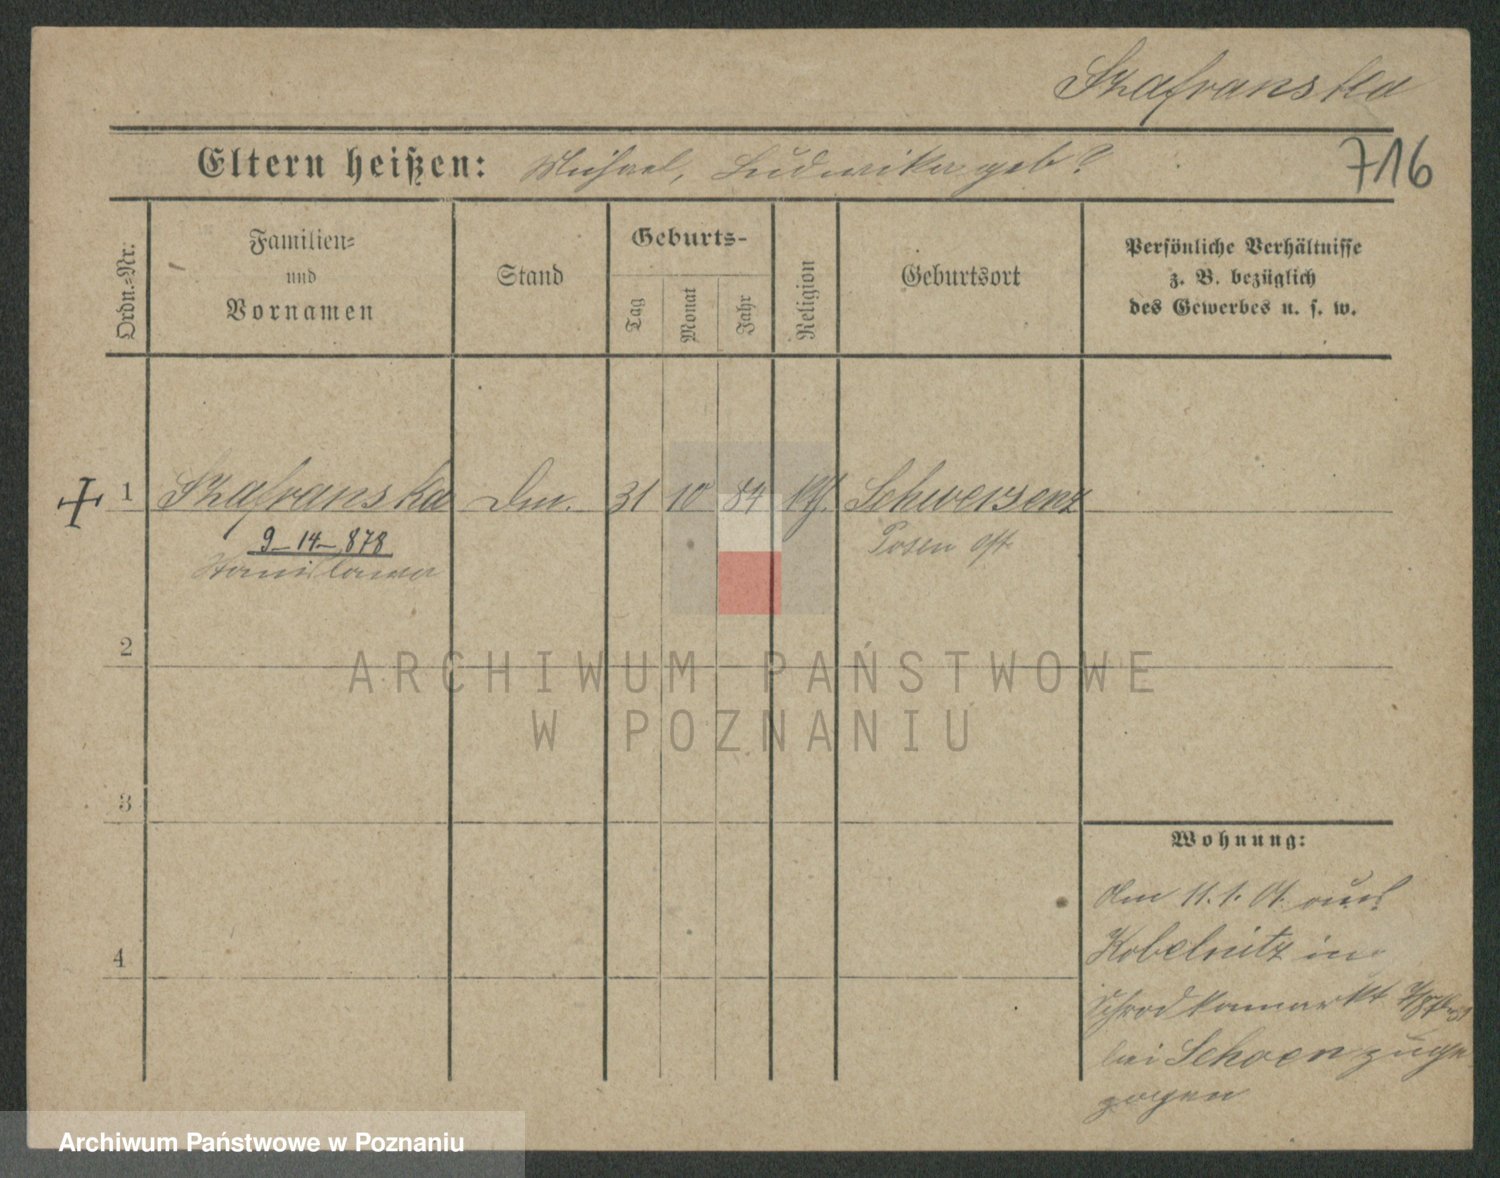 Szafranska
Eltern heißen: Michael, Ludwika geb?
716
Ordn.-Nr.
Familien-
und
Vornamen
Stand
Geburts-
Tag
Monat
Jahr
Religion
Geburtsort
Persönliche Verhältnisse
z. B. bezüglich
des Gewerbes u. s. w.
1 Szafranska Dm. 31 10 84 Schwersenz
9-14-878
Posen Ost
Stanislawa
2
ARCHIWUM PAŃSTWOWE
W POZNANIU
3
Wohnung:
Am 11.1.01. aus
4
Kobelnitz in
bei Schoen zuge
zogen
Archiwum Państwowe w Poznaniu